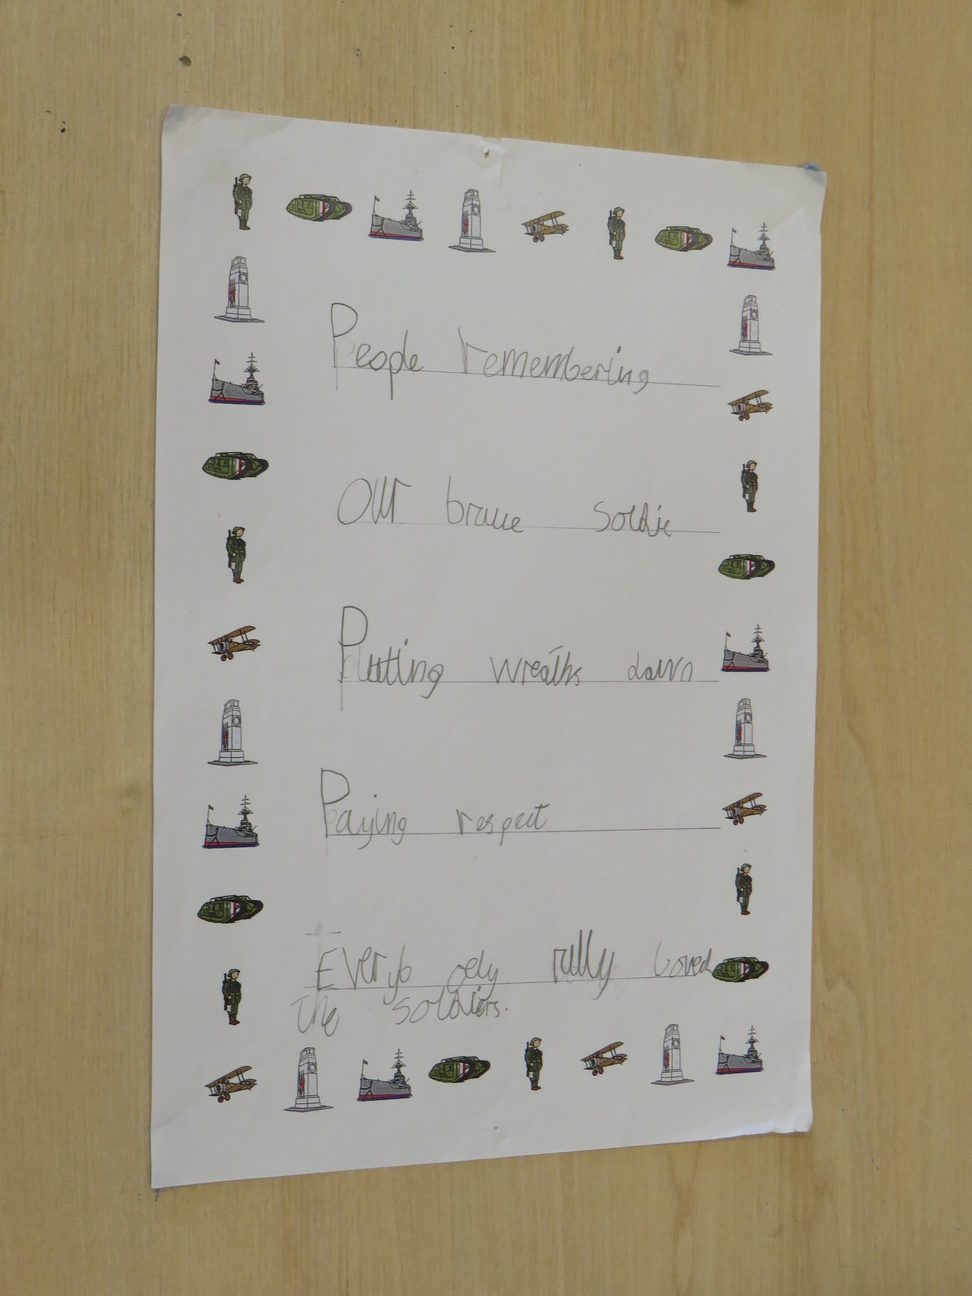 People remembering
Our brave soldie
Putting wreaths down
Paying respect
Everyb oely rully loved
the soldiors.